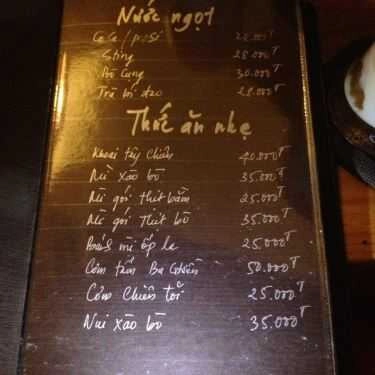 Nước ngọt
CoCa / pepsi 28.000đ
Sting 28.000đ
Bò Cụng 30.000đ
Trà bí đao 28.000đ
Thức ăn nhẹ
Khoai tây chiên 40.000đ
Mì xào bò 35.000đ
Mì gói thịt bằm 25.000đ
Mì gói Thịt bò 35.000đ
Bánh mì ốp la 25.000đ
Cơm tấm Ba Ghiền 50.000đ
Cơm Chiên tỏi 25.000đ
Nui xào bò 35.000đ